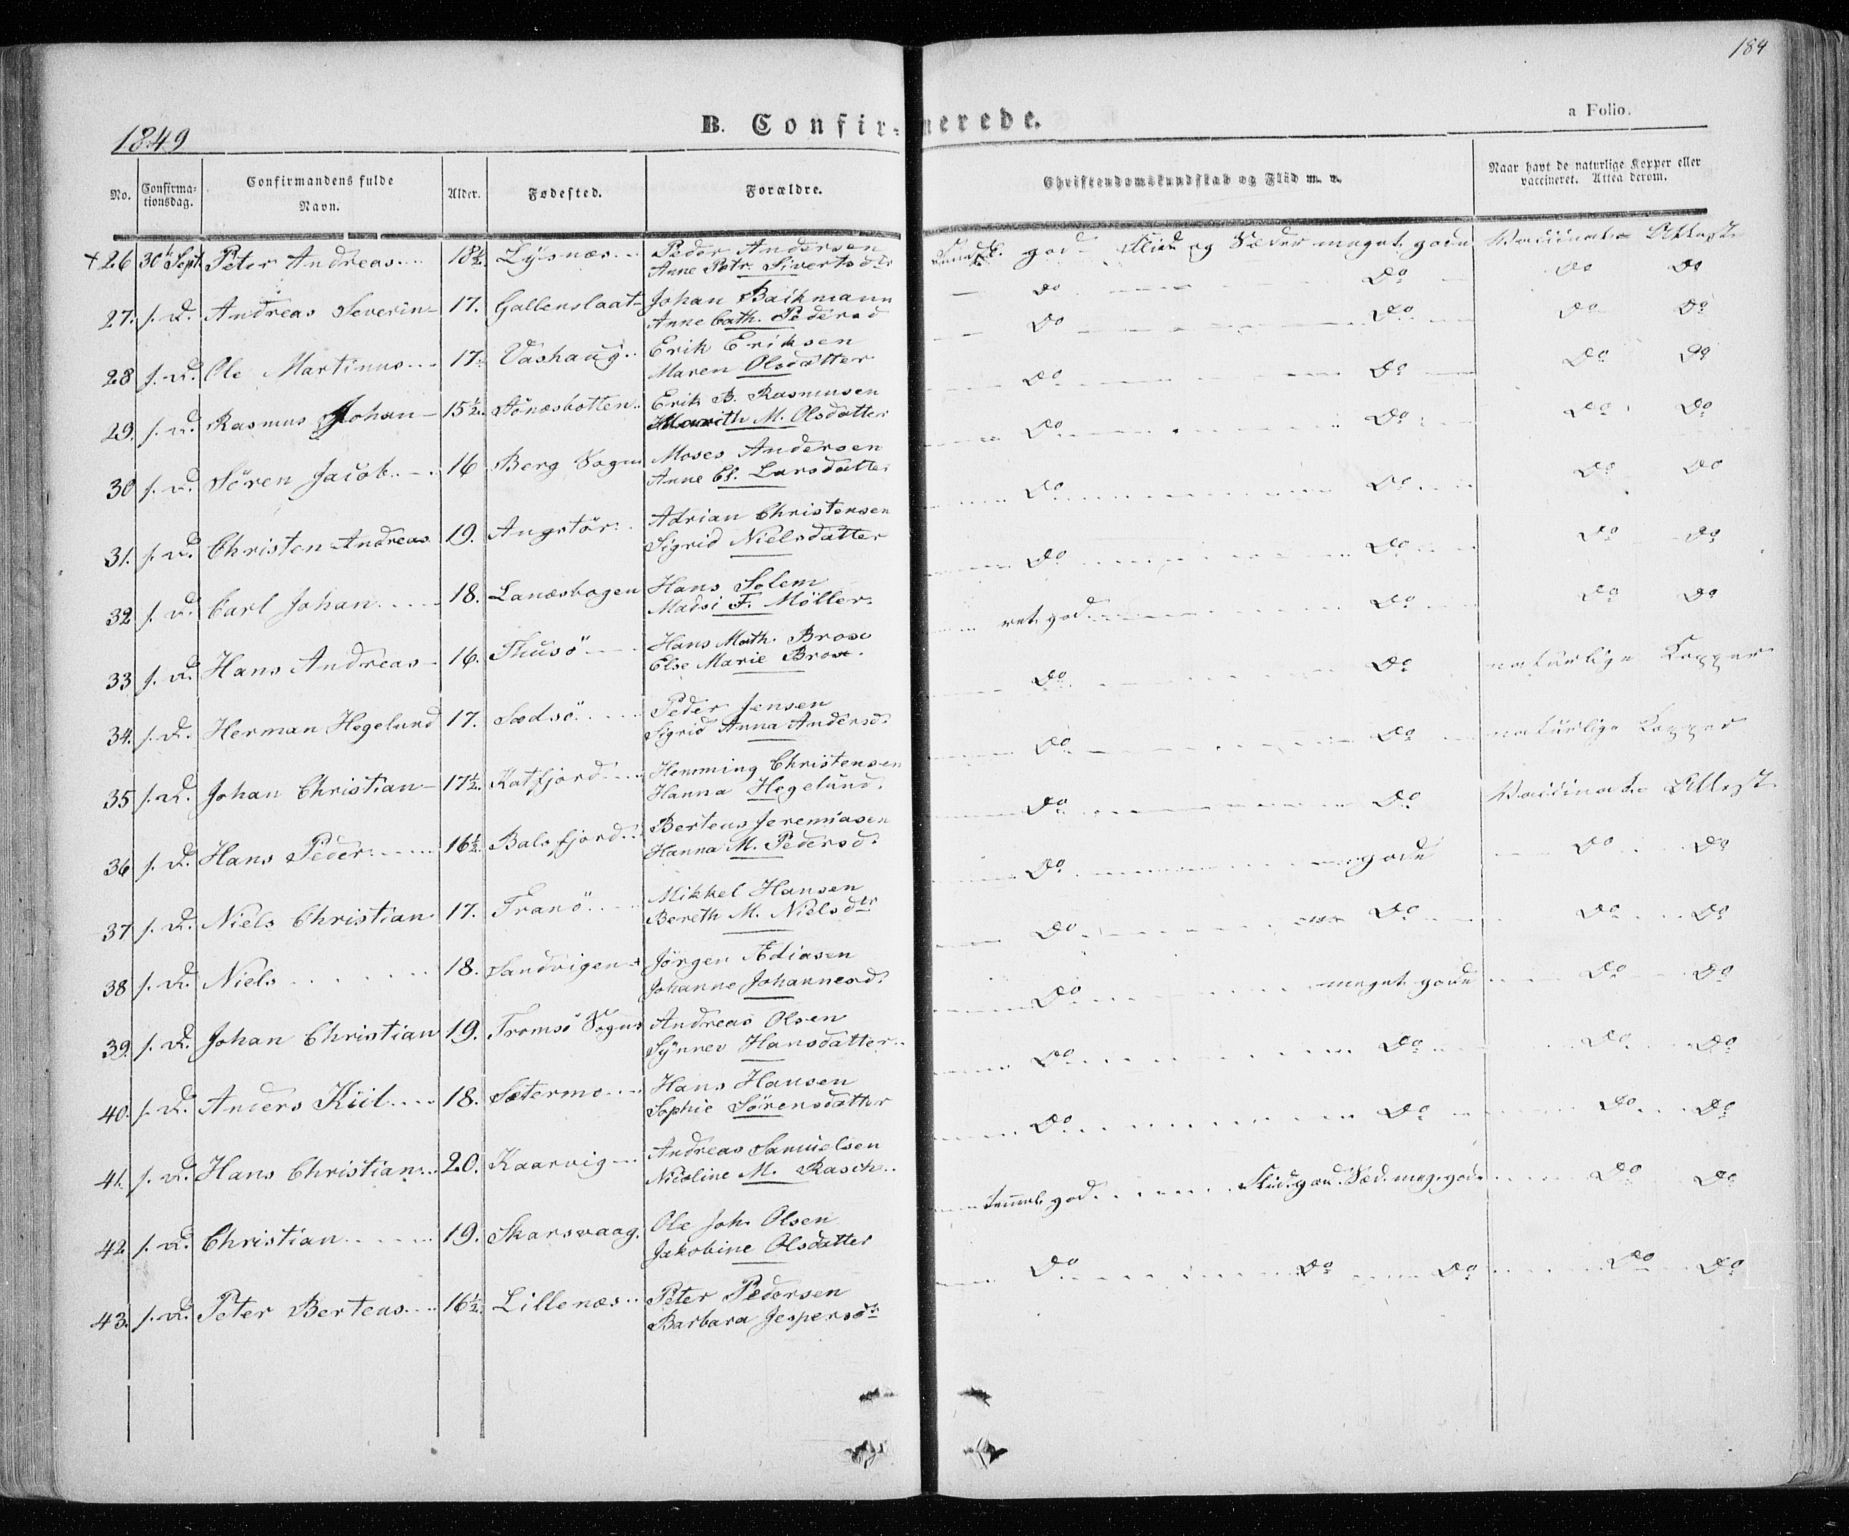 184
1849
B. Confirmerede.
a Folio.
No.
Confirmationsdag.
Confirmandens fulde Navn.
Alder.
Fødested.
Forældre.
Christendomskundskab og Flid m. v.
Naar havt de naturlige Kopper eller vaccineret. Attea derom.
+26 30 Sept Peter Andreas 18½ Lysnæs Peder Andersen god Flid og Sæder meget gode Vaccinat. Attest
Anne Petr. Sivertsdtr
27. s. D. Andreas Severin 17. Gallenslaat Johan Backmann Do Do Do Do
Anne Cath. Pedersd
28 s. D. Ole Martinus 17. Vashaug Erik Eriksen Do Do Do Do
Maren Olsdatter
29. s. D. Rasmus Johan 15½ Sónæsbotten Erik B. Rasmusen Do Do Do Do
Marith M. Olsdatter
30 s. D. Sören Jacob 16 Berg Sogn Moses Andersen Do Do Do Do
Anne El. Larsdatter
31. s. D. Christen Andreas 19. Angstör Adrian Christensen Do Do Do Do
Sigrid Nielsdatter
32 s. D. Carl Johan 18. Lanæsbogen Hans Solem Do Do Do Do
Madsi F. Möller
33 s. D. Hans Andreas 16. Thusö Hans Math. Brox ret god Do Do Do
Else Marie Brox
34. s. D. Herman Hegelund 17. Sædsö Peder Jensen Do Do naturlige Kopper
Sigrid Anna Andersd.
35 s. D. Johan Christian 17½ Katfjord Hemming Christensen Do Do naturlige Kopper
Hanna Hegelund
36 s. D. Hans Peder 16½ Balsfjord Berteus Jeremiasen Do Do Vaccinat. Attest
Hanna M. Pedersd.
37 s. D. Niels Christian 17. Tranö Mikkel Hansen Do gode Do Do
Bereth M. Nielsdtr
38 s. D. Niels 18. Sandvigen Jörgen Ediasen Do Do Do Do
Johanne Johannesd.
39. s. D. Johan Christian 19. Tromsö Sogn Andreas Olsen Do meget gode Do Do
Synnev Hansdatter
40. s. D. Anders Kiil 18. Sætermo Hans Hansen Do Do Do Do
Sophie Sörensdatter
41. s. D. Hans Christian 20. Kaarvig Andreas Samuelsen Do Do Do Do
Nicoline M. Rasch
42 s. D. Christian 19. Skarsvaag Ole Joh. Olsen god Flid god Sæd. meg. gode Do Do
Jakobine Olsdatter
43. s. D. Peter Berteus 16½ Lillenæs Peter Pedersen Do Do Do Do Do
Barbara Jespersdtr